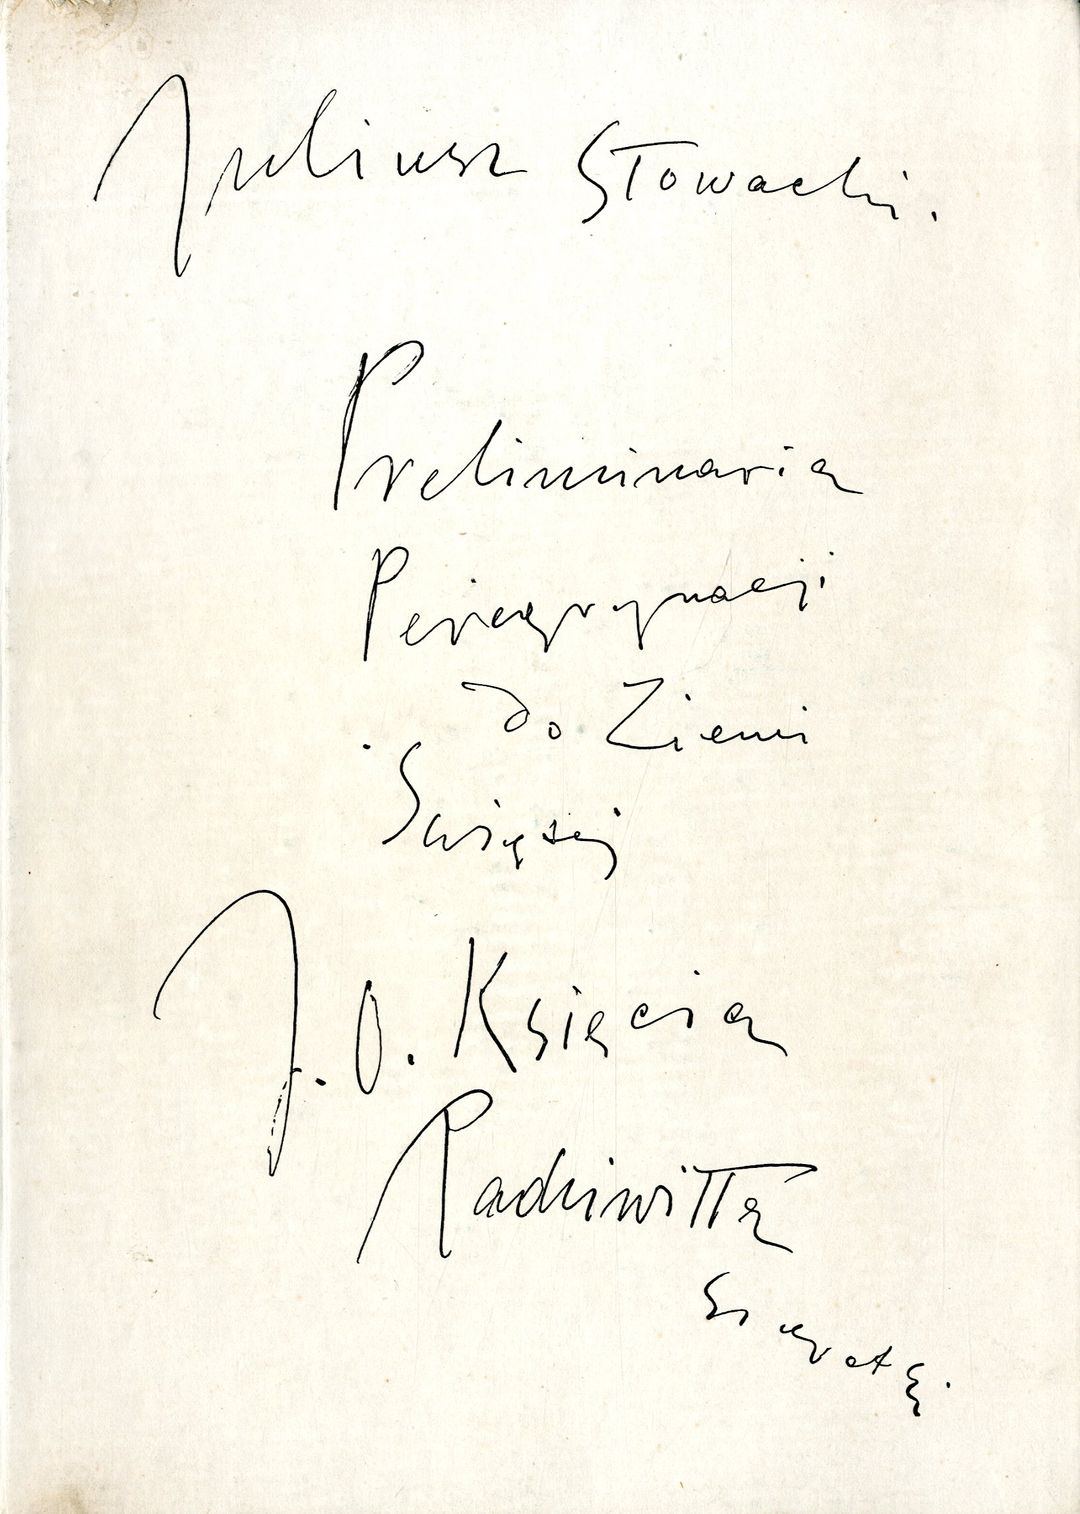 Juliusz Słowacki.
Preliminaria
Peregrynacji
do Ziemi
Świętej
J. O. Księcia
Radziwiłła
Sierotki.